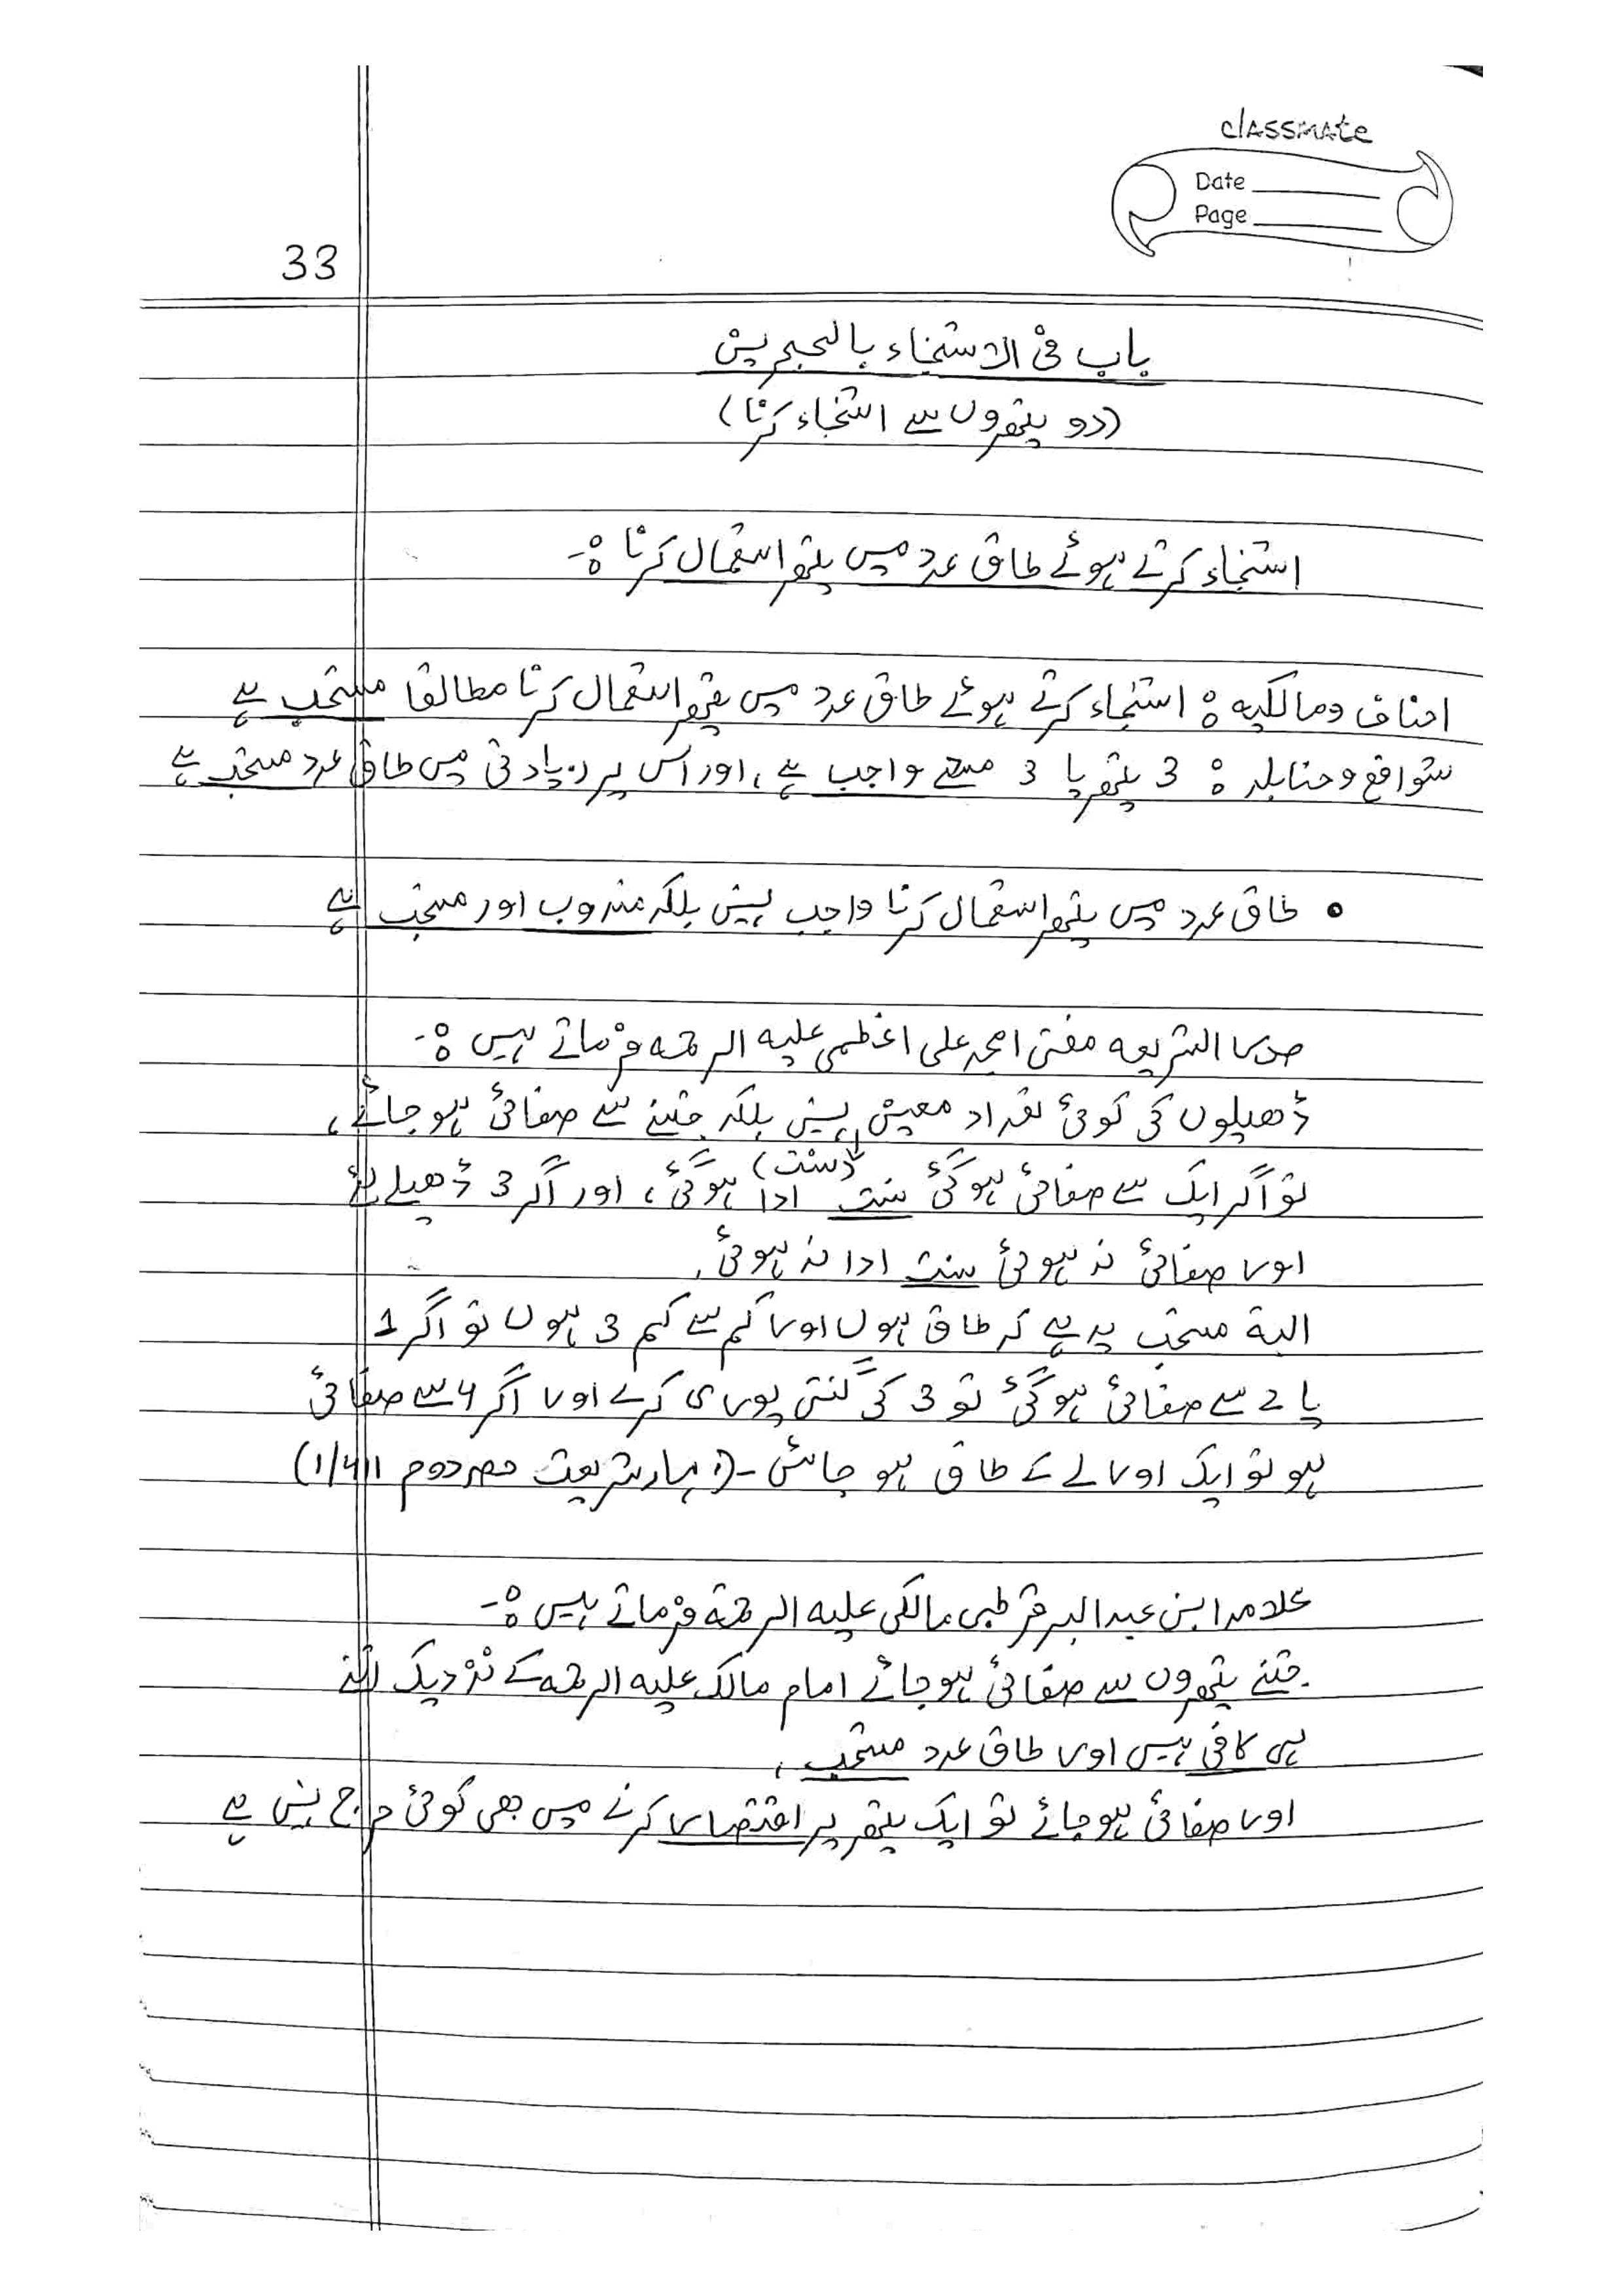 classmate
Date
Page
33
باب فی الاستنجاء بالحجرین
(دو پتھروں سے استنجاء کرنا)
استنجاء کرتے ہوئے طاق عدد میں پتھر استعمال کرنا :-
احناف ومالکیہ : استنجاء کرتے ہوئے طاق عدد میں پتھر استعمال کرنا مطالقا مستحب ہے
شوافع وحنابلہ : 3 پتھر یا 3 مسحے واجب ہے، اور اس پر زیادتی میں طاق عدد مستحب ہے
• طاق عدد میں پتھر استعمال کرنا واجب نہیں بلکہ مندوب اور مستحب ہے
صدر الشریعہ مفتی امجد علی اعظمی علیہ الرحمہ فرماتے ہیں :-
ڈھیلوں کی کوئی تعداد معین نہیں بلکہ جتنے سے صفائی ہو جائے،
تو اگر ایک سے صفائی ہوگئی سنت (سنت) ادا ہوگئی، اور اگر 3 ڈھیلے لئے
اور صفائی نہ ہوئی سنت ادا نہ ہوئی،
البتہ مستحب یہ ہے کہ طاق ہوں اور کم سے کم 3 ہوں تو اگر 1
یا 2 سے صفائی ہوگئی تو 3 کی گنتی پوری کرے اور اگر 4 سے صفائی
ہو تو ایک اور لے کے طاق ہو جائیں - (بہار شریعت حصہ دوم 1/411)
علامہ ابن عبد البر قرطبی مالکی علیہ الرحمۃ فرماتے ہیں :-
جتنے پتھروں سے صفائی ہو جائے امام مالک علیہ الرحمہ کے نزدیک اتنے
ہی کافی ہیں اور طاق عدد مستحب،
اور صفائی ہو جائے تو ایک پتھر پر اقتصار کرنے میں بھی کوئی حرج نہیں ہے